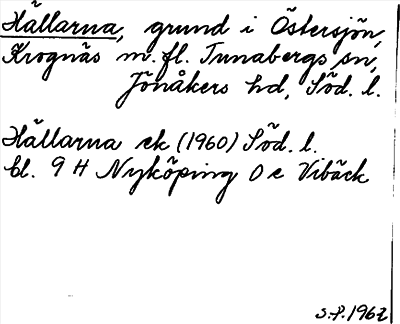 Hällarna, grund i Östersjön,
Krognäs m.fl. Tunabergs sn,
Jönåkers hd, Söd. l.
Hällarna ek (1960) Söd. l.
bl. 9 H Nyköping 0 c Vibäck
S.P. 1962